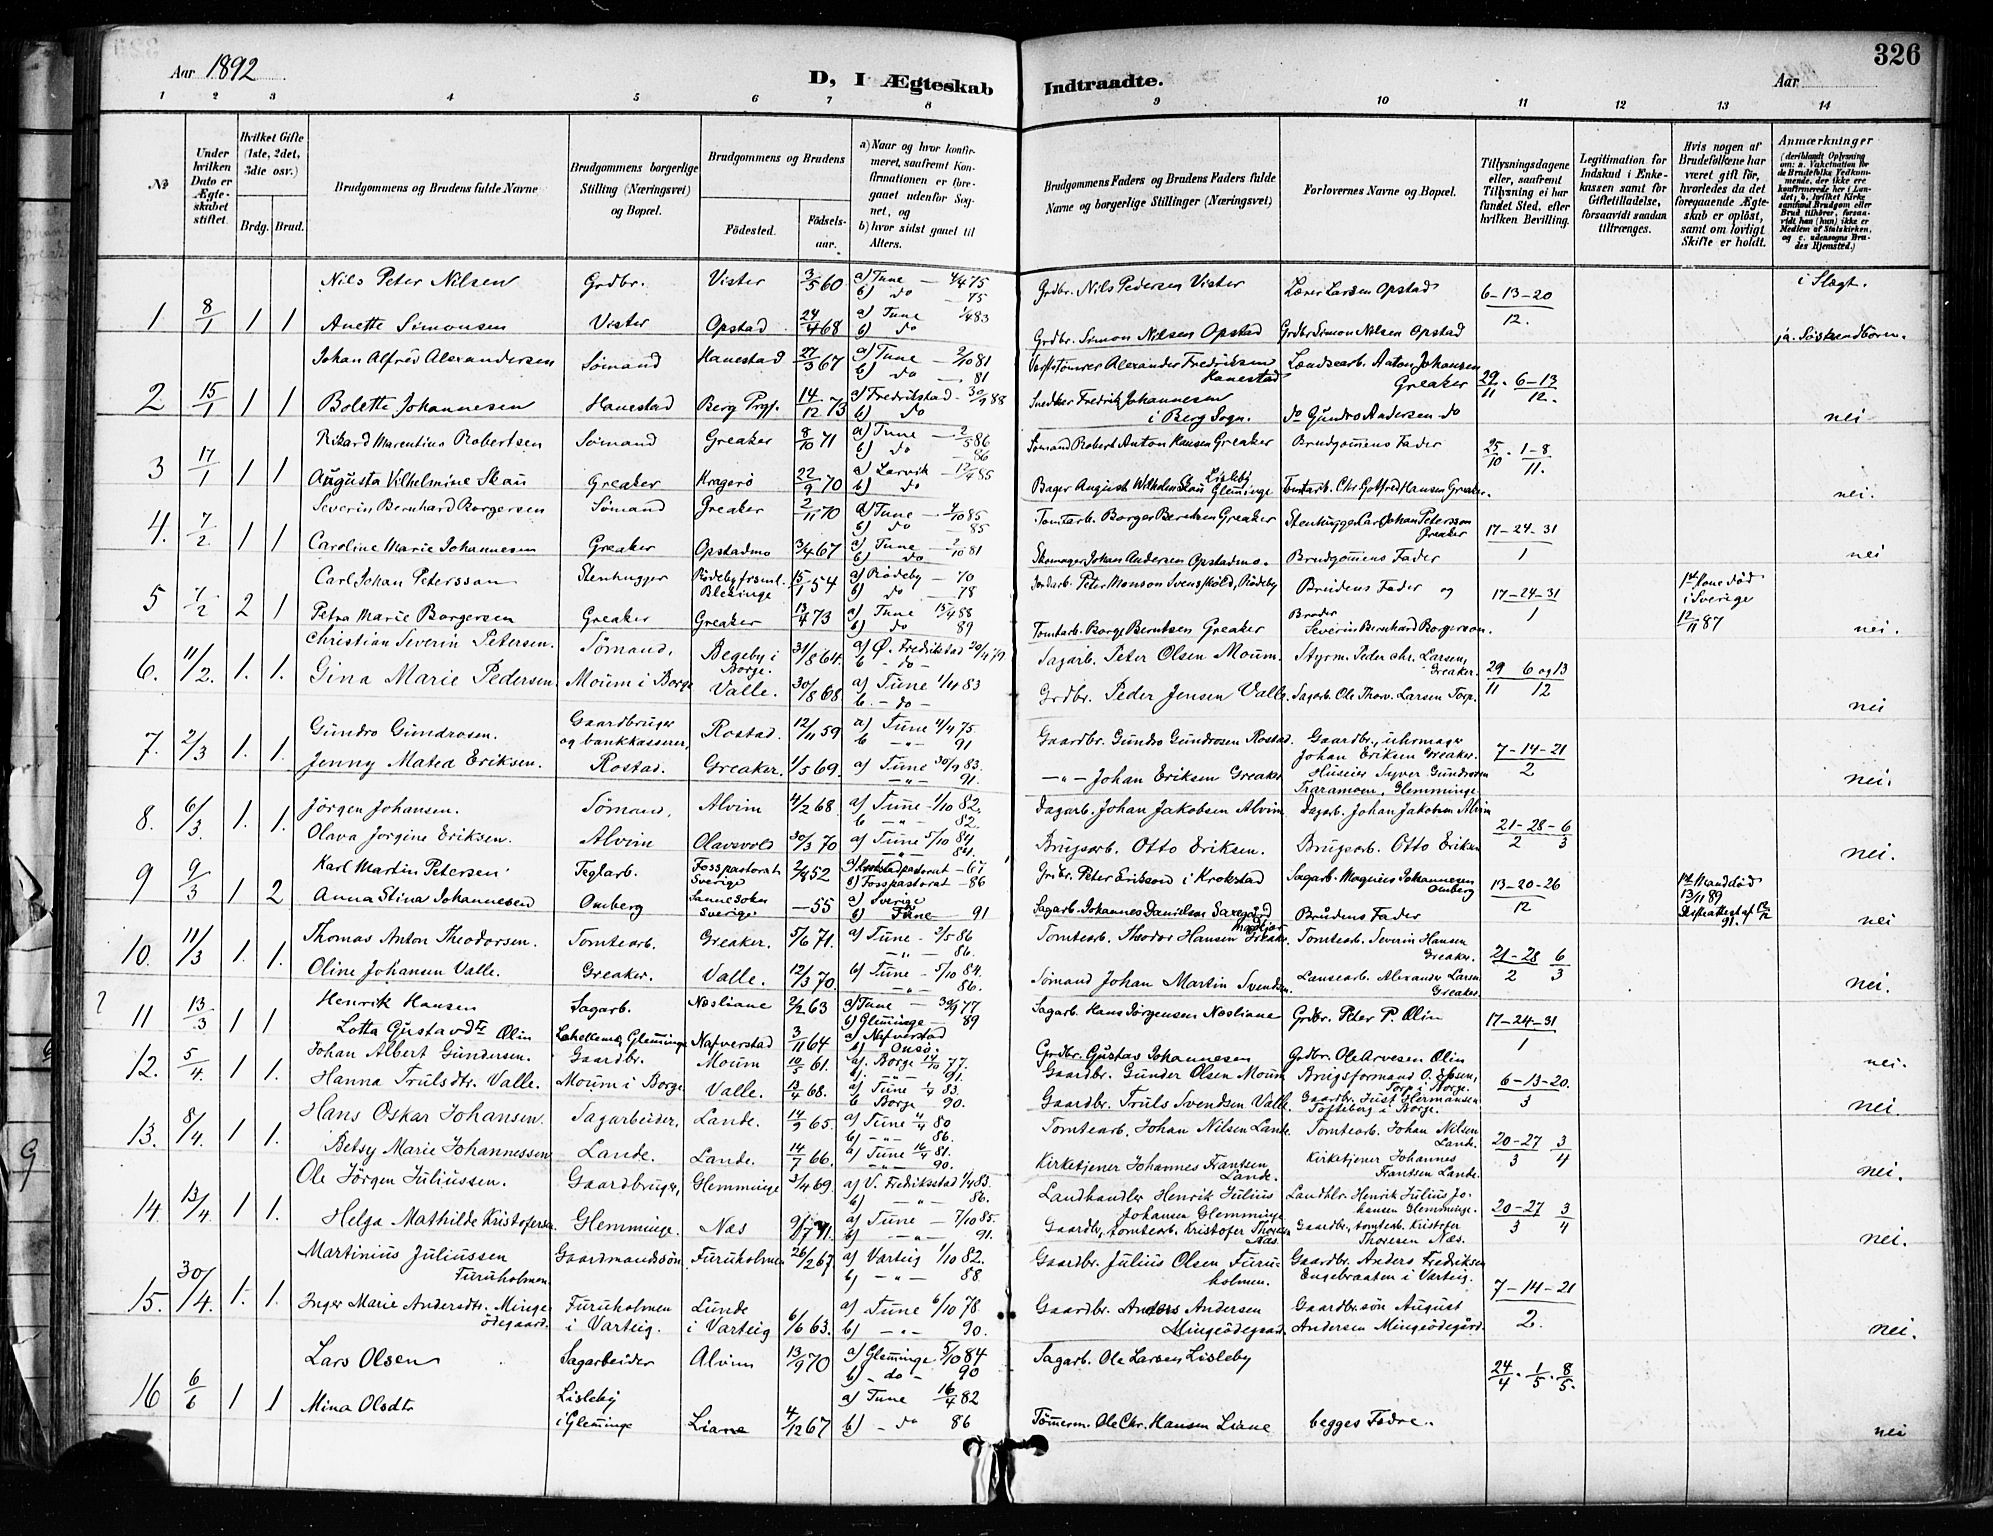 326
Aar 1892
D, I Ægteskab Indtraadte.
Aar
1 2 3 4 5 6 7 8 9 10 11 12 13 14
No
Under hvilken Dato er Ægteskabet stiftet.
Hvilket Gifte (1ste, 2det, 3die osv.)
Brdg. Brud.
Brudgommens og Brudens fulde Navne
Brudgommens borgerlige Stilling (Næringsvei) og Bopæl.
Brudgommens og Brudens
Fødested. Fødselsaar.
a) Naar og hvor konfirmeret, saafremt Konfirmationen er foregaaet udenfor Sognet, og
b) hvor sidst gaaet til Alters.
Brudgommens Faders og Brudens Faders fulde Navne og borgerlige Stillinger (Næringsvei)
Forlovernes Navne og Bopæl.
Tillysningsdagene eller, saafremt Tillysning ei har fundet Sted, efter hvilken Bevilling.
Legitimation for Indskud i Enkekassen samt for Giftetilladelse, forsaavidt saadan tiltrænges.
Hvis nogen af Brudefolkene har været gift før, hvorledes da det foregaaende Ægteskab er opløst, samt om lovligt Skifte er holdt.
Anmærkninger
(deriblandt Oplysning om: a. Vakcination for de Brudefolks Vedkommende, der ikke ere konfirmerede her i Landet; b. hvilket Kirkesamfund Brudgom eller Brud tilhører, forsaavidt han (hun) ikke er Medlem af Statskirken, og c. udensogns Brudes Hjemsted.)
Nils Peter Nilsen Grdbr. Vister 3/5 60 a) Tune — 4/4 75 Grdbr. Nils Pedersen Vister Lærer Larsen Opstad 6-13-20 i Slægt.
b) do 75
1 8/1 1 1 Anette Simonsen Vister Opstad 24/4 68 a) Tune 83 Grdbr. Simon Nilsen Opstad Grdbr Simon Nilsen Opstad 12. ja. Søskendbørn.
b) do
Johan Alfred Alexandersen Sømand Hanestad 27/3 67 a) Tune — 2/10 81 Tømrer Alexander Fredriksen Hanestad Landsearb. Anton Johansen Greaker 29/11 · 6-13/12.
b) do — 81
2. 15/1 1 1 Bolette Johannesen Hanestad Berg Prgj. 14/12 73 a) Fredrikstad - 30/9 88 Snedker Fredrik Johannesen i Berg Sogn. do Gundro Andersen do nei
b) do
Rikard Marentius Robertsen Sømand Greaker 8/10 71 a) Tune — 2/5 86 Sømand Robert Anton Hansen Greaker Brudgomens Fader 25/10 · 1-8/11.
b) do 86
3 17/1 1 1 Augusta Vilhelmine Skau Greaker Kragerø 22/9 70 a) Larvik - 12/4 85 Bager August Wilhelm Skau Lisleby Glemminge Tomtarb. Chr. Gotfred Hansen Greaker. nei.
b) do
Severin Bernhard Borgersen Sømand Greaker 2/11 70 a) Tune — 4/10 85 Tomtarb. Borger Berntsen Greaker Stenhugger Carl Johan Petersson Greaker 17-24-31
b) do 85
4. 7/2 1 1 Caroline Marie Johannesen Greaker Opstadmo 3/4 67 a) Tune — 2/10 81 Skomager Johan Andersen Opstadmo. Brudgomens Fader 1 nei
b) do
Carl Johan Petersson Stenhugger Rødeby frsml. Blekinge 15/1 54 a) Rødeby — 70 Jordarb. Peter Monson Svenskøld, Rødeby Brudens Fader og 17-24-31 1ste Kone død i Sverige 12/11 87
b) do — 78
5 7/2 2 1 Petra Marie Borgersen Greaker Greaker 13/4 73 a) Tune 15/4 88 Tomtarb. Borge Berntsen Greaker Broder Severin Bernhard Borgerson. 1 nei.
b) do 89
Christian Severin Petersen. Sømand, Begeby i Borge. 31/8 64. a) Ø. Fredrikstad 20/4 79. Sagarb. Peter Olsen Moum. Styrm. Peder Chr. Larsen, Greaker. 29/11 6 og 13/12
b. - do -
6. 11/2. 1. 1. Gina Marie Pedersen. Moum i Borge Valle. 30/8 68 a) Tune 1/4 83 Grdbr. Peder Jensen Valle. Sagarb. Ole Thorv. Larsen Torp. nei
b. - do -
Gundro Gundrosen. Gaardbruger og bankkasserer, Rostad. 12/11 59 a) Tune 4/4 75. Gaardbr. Gundro Gundrosen Rostad. Gaardbr., uhrmager Johan Eriksen Greaker. 7-14-21
b -"- 91
7. 2/3 1. 1. Jenny Matea Eriksen. Rostad. Greaker. 1/5 69. a) Tune 30/9 83. -"- Johan Eriksen Greaker Huseier Syver Gundrosen Traramoen, Glemminge 2 nei.
-"- 91.
Jørgen Johansen. Sømand, Alvim 4/2 68 a) Tune - 1/10 82. Dagarb. Johan Jakobsen Alvim Dagarb. Johan Jakobsen Alvim
b -"- 82.
8. 6/3 1. 1. Olava Jorgine Eriksen. Alvim Olavsvold 30/3 70 a) Tune 5/10 84. Brugsarb. Otto Eriksen. Brugsarb. Otto Eriksen 21-28-6/2 3 nei.
-"- 84.
Karl Martin Petersen. Teglarb. Fosspastorat Sverige 2/4 52 a) Krokstadpastorat -67 Grdbr. Peter Erikson i Krokstad Sagarb. Magnus Johannesen Omberg 13-20-26 1ste Mand død 13/11 89
b) Fosspastorat - 86
9 9/3 1 2 Anna Stina Johannesen Omberg Sanne Sokn Sverige — 55 a) Sverige Sagarb. Johannes Danielsen Brudens Fader 12 Skifteattest af nei
b) Tune — 91
Thomas Anton Theodorsen. Tomtearb. Greaker. 5/6 71. a) Tune - 2/5 86 Tomtearb. Theodor Hansen Greaker Tomtearb. Severin Hansen Greaker.
-"- 86.
10. 11/3 1. 1. Oline Johansen Valle. Greaker. Valle. 12/3 70. b) Tune - 5/10 84. Sømand Johan Martin Svendsen. Lansearb. Alexander Larsen Greaker. 21-28/2 6/3 nei.
-"- 86.
Henrik Hansen Sagarb. Næsliane 2/2 63 a) Tune — 30/9 77 Sagarb. Hans Jørgensen Næsliane Grdbr. Peter P. Olin 17-24-31
b) Glemminge — 89
11 13/3 1 1 Lotta Gustavdtr Olin Glemminge Nafverstad 3/11 64 a) Nafverstad Grdbr. Gustav Johannesen Grdbr. Ole Arvesen Olin 1 nei.
b) Onsø.
Johan Albert Gundersen. Gaardbr. Moum 10/5 61. a) Borge 14/10 77. Gaardbr. Gunder Olsen Moum Brugsformand O. Torp i Borge.
b. -"- 91.
12. 5/4 1 1. Hanna Trulsdtr. Valle. Moum i Borge Valle. 13/4 68. a) Tune 83. Gaardbr. Truls Svendsen Valle. Gaardbr. Just Hermansen Tofteberg i Borge. 6-13-20. 3 nei.
b Borge 90.
Hans Oskar Johansen. Sagarbeider, Lande. 14/9 65. a) Tune 80 Tomtearb. Johan Nilsen Lande. Tomtearb. Johan Nilsen Lande.
b) -"- 86.
13. 8/4. 1 1. Betsy Marie Johannessen Lande. Lande. 14/7 66. a) Tune 16/4 81. Kirketjener Johannes Frantsen Lande. Kirketjener Johannes Frantsen Lande. 20-27/3 3/4 nei.
-"- 90.
Ole Jørgen Juliussen. Gaardbruger, Glemminge 3/4 69. a) V. Fredrikstad 1/4 83. Landhandler Henrik Julius Johansen Glemminge Landhlr. Henrik Julius Johansen Glemminge.
b) " 86.
14. 13/4. 1 1. Helga Mathilde Kristofersen Glemminge. Næs 9/7 71. a) Tune — 7/10 85. Gaardbr., tomtearb. Kristofer Thoresen Næs. Gaardbr., tomtearb. Kristofer Thoresen Næs. 20-27/3 3/4 nei.
b) -"- 91.
Martinius Juliussen Furuholmen Gaardmandssøn Furuholmen 26/2 67. a) Varteig 1/10 82. Gaardbr. Julius Olsen Furuholmen. Gaardbr. Anders Fredriksen Engebraaten i Varteig.
b) -"- 88.
15. 30/4. 1. 1. Inger Marie Andersdtr. Mingeødegaard. Furuholmen i Varteig. Lunde i Varteig 6/6 63. a) Tune 6/10 78 Gaardbr. Anders Andersen Mingeødegaard. Gaardbr. søn August Andersen Mingeødegård. 7-14-21 2. nei.
b) -"- 90.
Lars Olsen Sagarbeider Alvim 13/9 70 a) Glemminge 5/10 84 Sagarb. Ole Larsen Lisleby 24/4 · 1/5 · 8/5.
b) - do - 90
16 6/6 1 1 Mina Olsdtr Lisleby i Glemminge Liane 4/12 67 a) Tune 16/4 82 Tømerm. Ole Chr. Hansen Liane begges Fædre. nei
b) - do 86